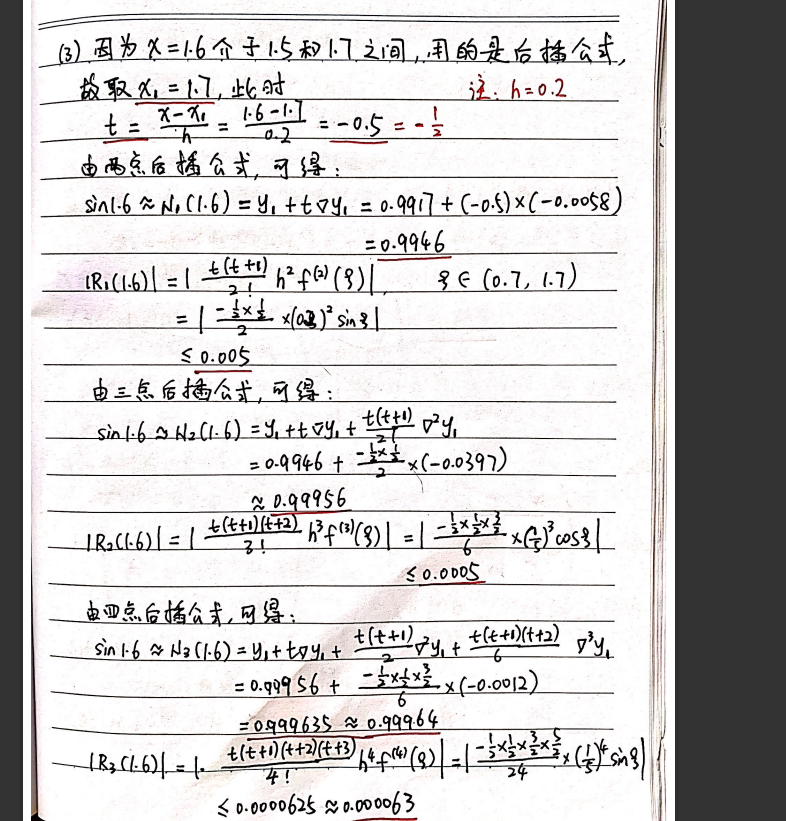 (3) 因为 x=1.6 介于 1.5 和 1.7 之间, 用的是后插公式,
故取 x₁=1.7, 此时 注: h=0.2
t = (x-x₁)/h = (1.6-1.7)/0.2 = -0.5 = -1/2
由两点后插公式, 可得:
sin1.6 ≈ N₁(1.6) = y₁ + t∇y₁ = 0.9917 + (-0.5)×(-0.0058)
= 0.9946
|R₁(1.6)| = | t(t+1)/2! h² f⁽²⁾(ξ) |, ξ ∈ (0.7, 1.7)
= | (-1/2×1/2)/2 ×(0.2)² sinξ |
≤ 0.005
由三点后插公式, 可得:
sin1.6 ≈ N₂(1.6) = y₁ + t∇y₁ + t(t+1)/2! ∇²y₁
= 0.9946 + (-1/2×1/2)/2 ×(-0.0397)
≈ 0.99956
|R₂(1.6)| = | t(t+1)(t+2)/3! h³f⁽³⁾(ξ) | = | (-1/2×1/2×3/2)/6 ×(1/5)³cosξ |
≤ 0.0005
由四点后插公式, 可得:
sin1.6 ≈ N₃(1.6) = y₁ + t∇y₁ + t(t+1)/2 ∇²y₁ + t(t+1)(t+2)/6 ∇³y₁
= 0.99956 + (-1/2×1/2×3/2)/6 ×(-0.0012)
= 0.999635 ≈ 0.99964
|R₃(1.6)| = | t(t+1)(t+2)(t+3)/4! h⁴f⁽⁴⁾(ξ) | = | (-1/2×1/2×3/2×5/2)/24 ×(1/5)⁴ sinξ |
≤ 0.0000625 ≈ 0.000063